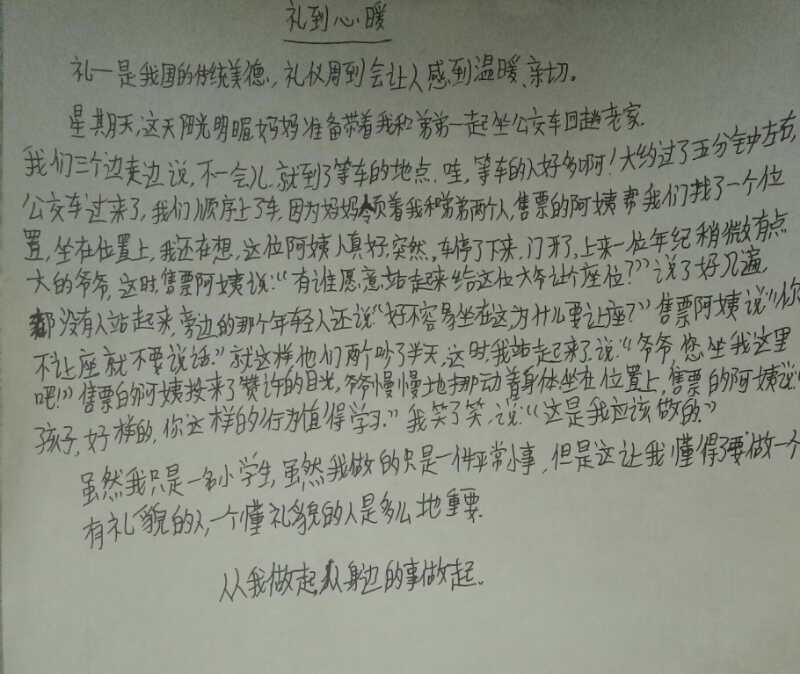 礼到心暖
礼——是我国的传统美德,礼仪周到会让人感到温暖、亲切。
星期天,这天阳光明媚,妈妈准备带着我和弟弟一起坐公交车回趟老家.
我们三个边走边说,不一会儿就到了等车的地点.哇,等车的人好多啊!大约过了五分钟左右,
公交车过来了,我们顺序上了车,因为妈妈领着我和弟弟两个人,售票的阿姨帮我们找了一个位
置,坐在位置上,我还在想,这位阿姨人真好,突然,车停了下来,门开了,上来一位年纪稍微有点
大的爷爷,这时,售票阿姨说:“有谁愿意站起来给这位大爷让个座位?”说了好几遍,
都没有人站起来,旁边的那个年轻人还说“好不容易坐在这,为什么要让座?”售票阿姨说“你
不让座就不要说话.”就这样他们两个吵了半天,这时,我站起来了,说:“爷爷,您坐我这里
吧!”售票的阿姨投来了赞许的目光,爷爷慢慢地挪动着身体坐在位置上,售票的阿姨说:“
孩子,好样的,你这样的行为值得学习.”我笑了笑,说:“这是我应该做的.”
虽然我只是一名小学生,虽然我做的只是一件平常小事,但是这让我懂得了要做一个
有礼貌的人,一个懂礼貌的人是多么地重要.
从我做起,从身边的事做起.